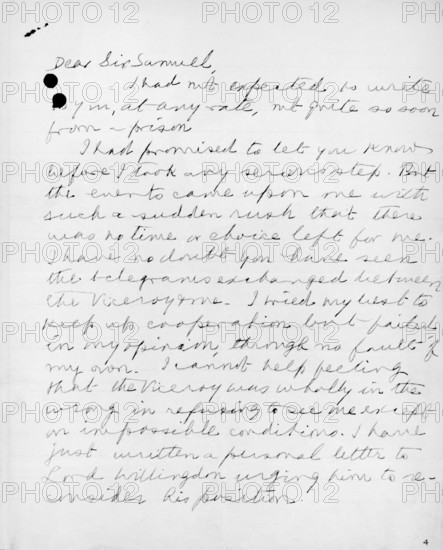 PHOTO 12 PHOTO 12 PHOTO 12 PHOTO 12
Dear Sir Samuel,
I had not expected to write
to you, at any rate, not quite so soon
from a prison
I had promised to let you know
before I took any serious step. But
the events came upon me with
such a sudden rush that there
was no time or choice left for me.
I have no doubt you have seen
the telegrams exchanged between
the Viceroy & me. I tried my best to
keep up cooperation but failed,
in my opinion, through no fault of
my own. I cannot help feeling
that the Viceroy was wholly in the
wrong in refusing to see me except
on impossible conditions. I have
just written a personal letter to
Lord Willingdon urging him to re-
consider his position.
4